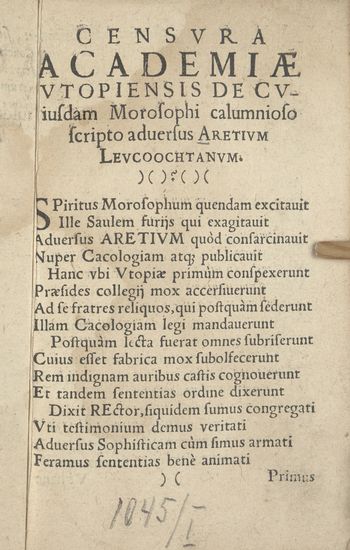 CENSVRA
ACADEMIÆ
VTOPIENSIS DE CV-
iusdam Morosophi calumnioso
scripto aduersus ARETIVM
LEVCOOCHTANVM.
)( ):( )(
SPiritus Morosophum quendam excitauit
Ille Saulem furijs qui exagitauit
Aduersus ARETIVM quòd consarcinauit
Nuper Cacologiam atq; publicauit
Hanc vbi Vtopiæ primùm conspexerunt
Præsides collegij mox accersiuerunt
Ad se fratres reliquos, qui postquàm sederunt
Illam Cacologiam legi mandauerunt
Postquàm lecta fuerat omnes subriserunt
Cuius esset fabrica mox subolfecerunt
Rem indignam auribus castis cognouerunt
Et tandem sententias ordine dixerunt
Dixit REctor, siquidem sumus congregati
Vti testimonium demus veritati
Aduersus Sophisticam cùm simus armati
Feramus sententias benè animati
)(
Primus
1045/I